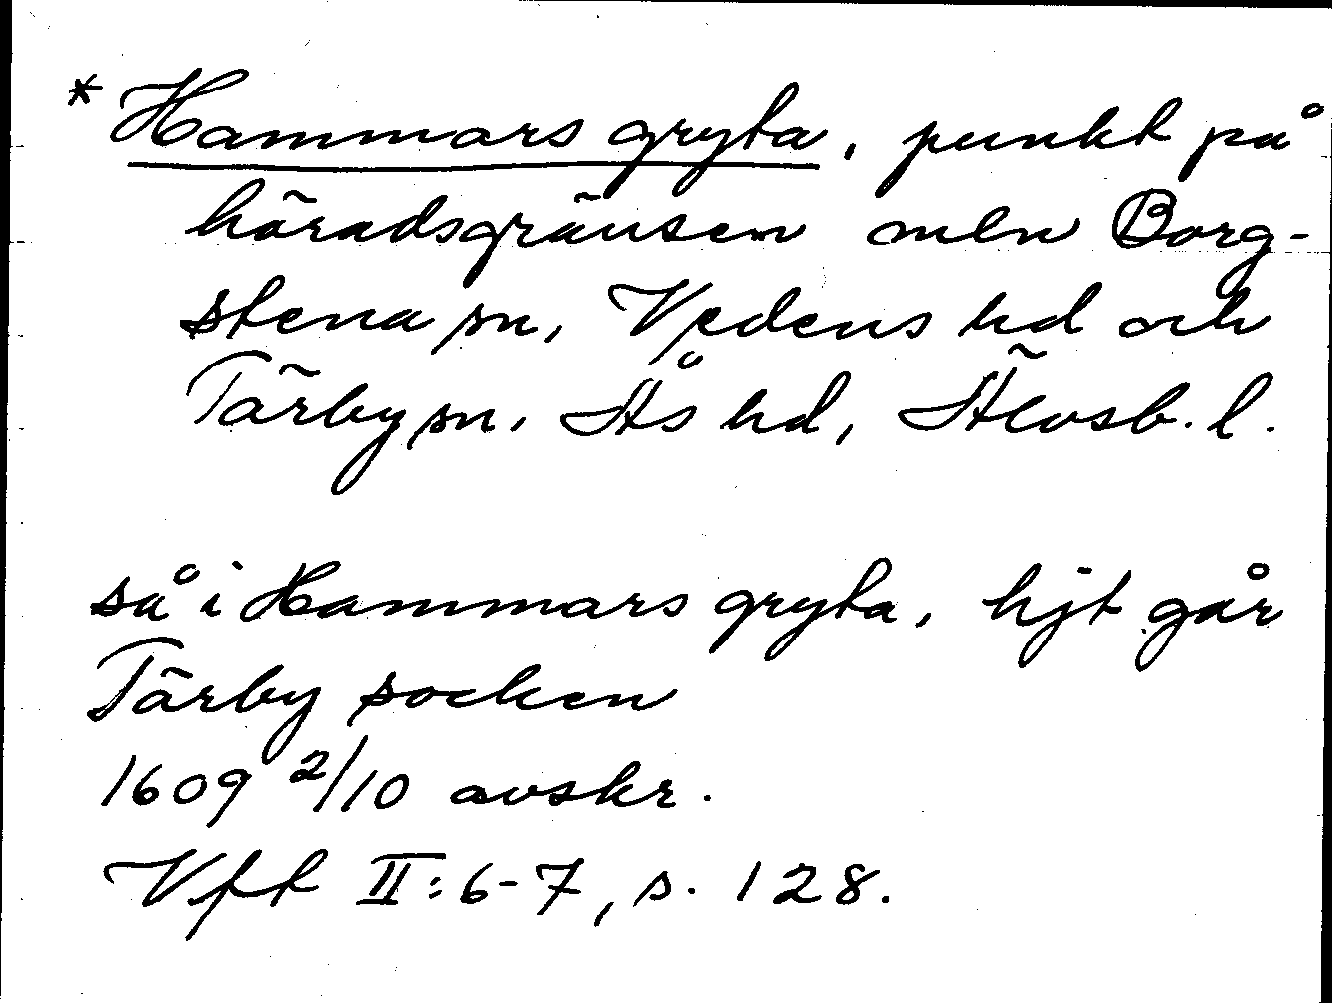 * Hammars gryta, punkt på
häradsgränsen mln Borg-
stena sn, Vedens hd och
Tärby sn, Ås hd, Älvsb. l.
så i Hammars gryta, hjt går
Tärby socken
1609 2/10 avskr.
Vft II:6-7, s. 128.